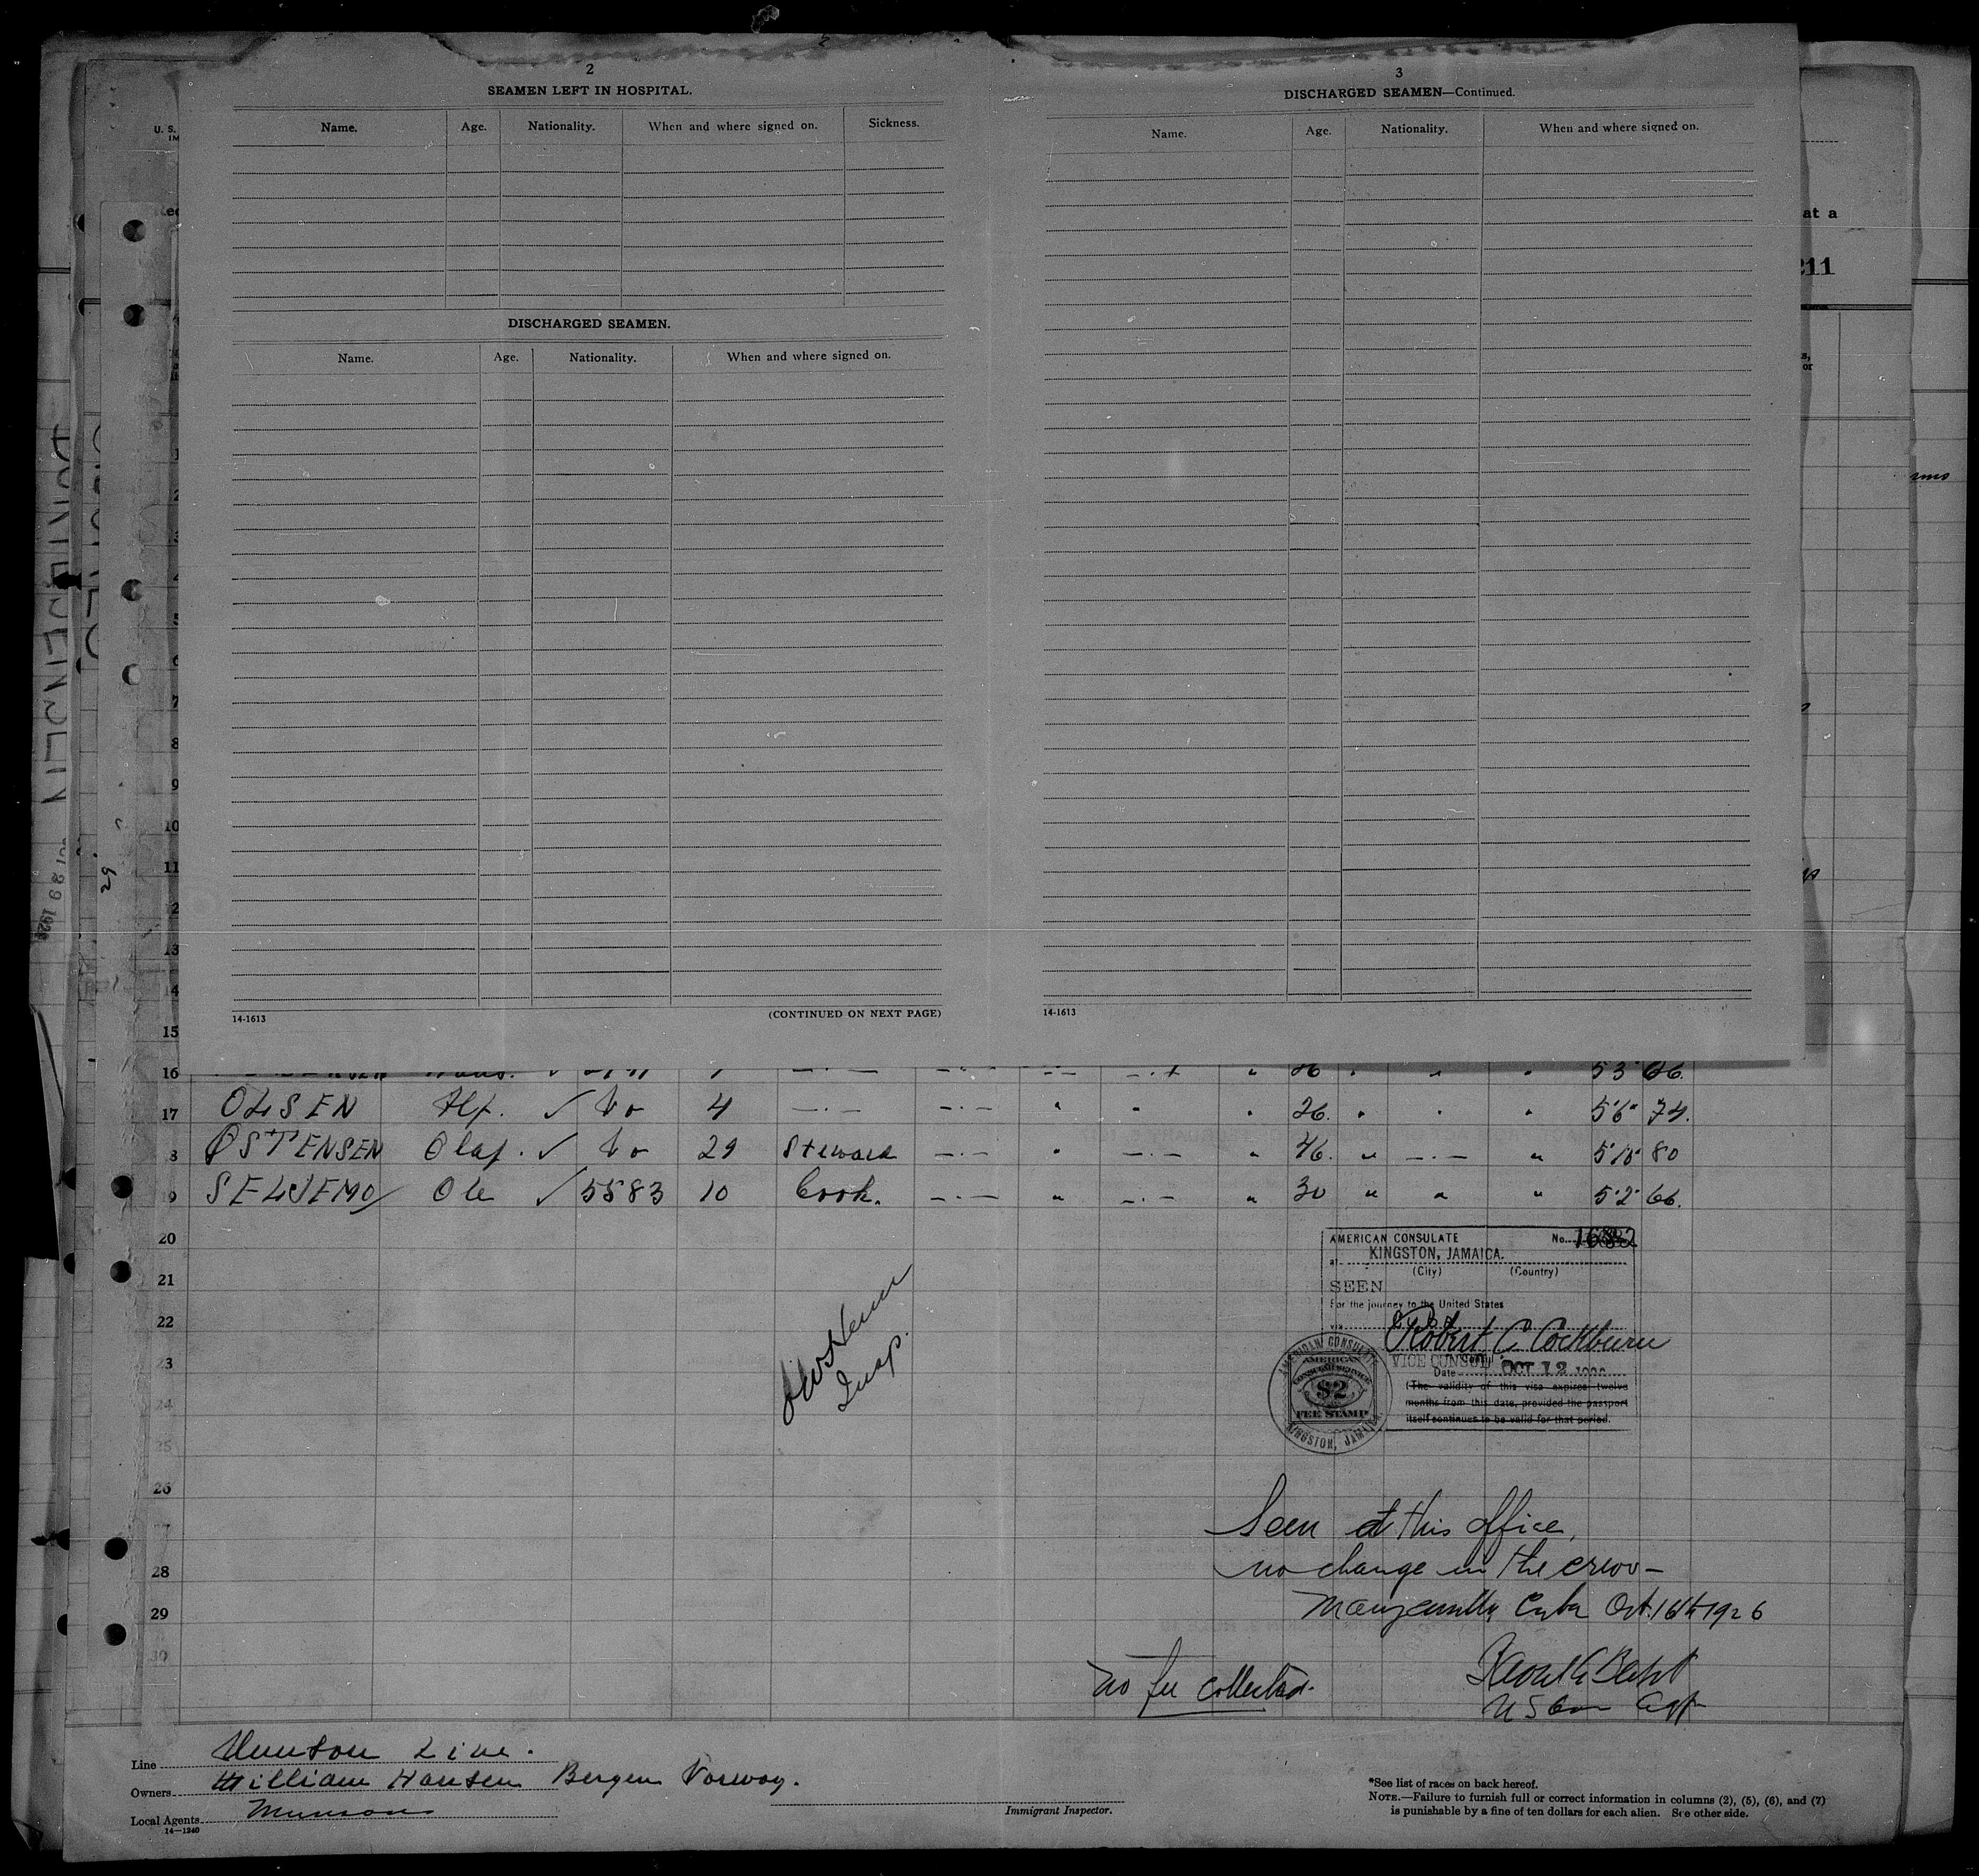 2
SEAMEN LEFT IN HOSPITAL.
Name. Age. Nationality. When and where signed on. Sickness.
DISCHARGED SEAMEN.
Name. Age. Nationality. When and where signed on.
14-1613 (CONTINUED ON NEXT PAGE)
3
DISCHARGED SEAMEN—Continued.
Name. Age. Nationality. When and where signed on.
14-1613
U. S.
IM
at a
211
or
29
1
2
3
4
5
6
7
8
9
10
11
12
13
14
15
16 26 " " " 5'3" 66.
17 OLSEN Alf. ✓ No 4 —·— —·— " " " 26. " " " 5'6" 74.
8 ØSTENSEN Olaf. ✓ No 29 Steward —·— " —·— " 46. " —·— " 5'10" 80
9 SELJEMO Ole ✓ 5583 10 Cook. —·— " —·— " 30 " " " 5'2" 66.
20
21
22
23
24
25
26
28
29
30
Insp.
AMERICAN CONSULATE No. 1682
at KINGSTON, JAMAICA.
(City) (Country)
SEEN
For the journey to the United States
via
Robert C Cockburn
VICE CONSUL
Date OCT 12
(The validity of this visa expires twelve
months from this date, provided the passport
itself continues to be valid for that period.
AMERICAN CONSULATE
AMERICAN
CONSULAR SERVICE
$2
FEE STAMP
KINGSTON, JAMAICA
Seen at this office,
no change in the crew—
Manzanillo Cuba Oct. 16th 1926
No fee collected.
Line Munson Line.
Owners William Hansen Bergen Norway.
Local Agents Munson
14—1240
Immigrant Inspector.
*See list of races on back hereof.
NOTE.—Failure to furnish full or correct information in columns (2), (5), (6), and (7)
is punishable by a fine of ten dollars for each alien. See other side.